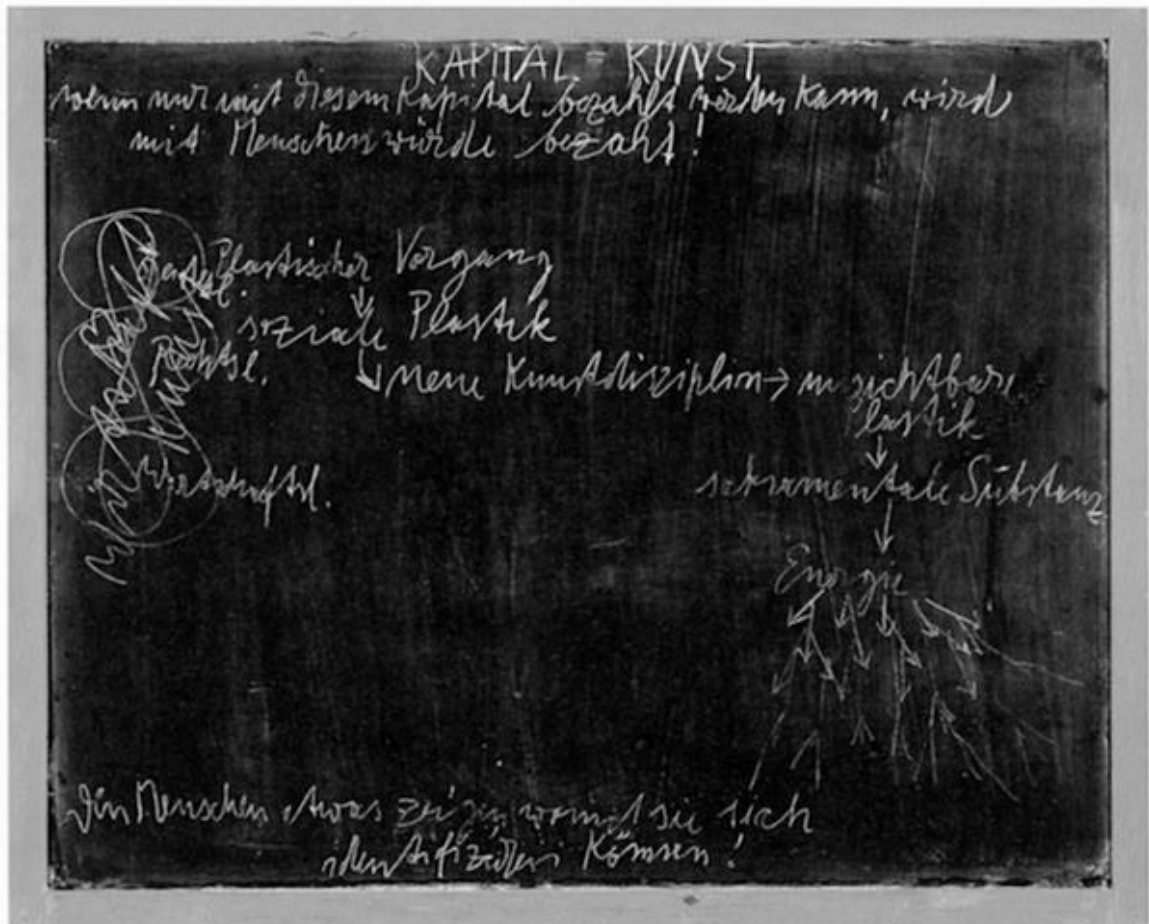 KAPITAL = KUNST
wenn nur mit diesem Kapital bezahlt werden kann, wird
mit Menschenwürde bezahlt!
Plastischer Vorgang
soziale Plastik
Rechtsl.
neue Kunstdisziplin → unsichtbare
Plastik
Wirtschaftsl.
sakramentale Substanz
Energie
den Menschen etwas zeigen womit sie sich
identifizieren können!